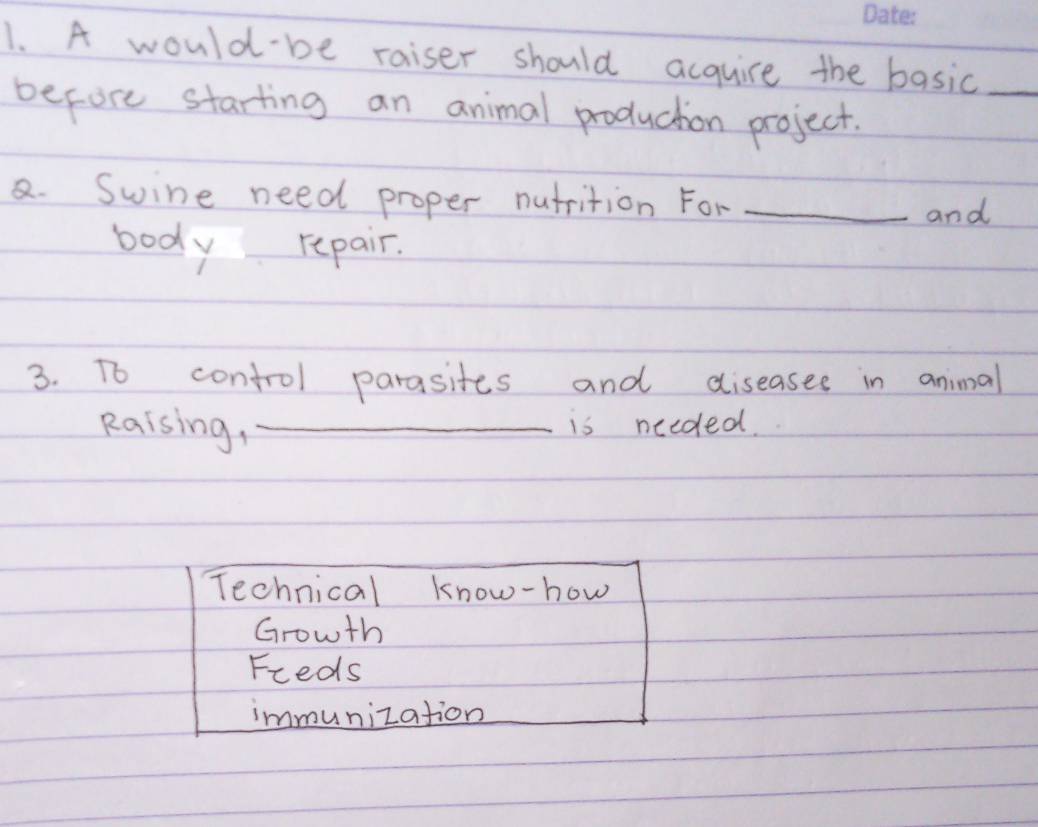 Date:
1. A would-be raiser should acquire the basic ____
before starting an animal production project.
2. Swine need proper nutrition For ________ and
body repair.
3. To control parasites and diseases in animal
Raising, ______________ is needed.
Technical know-how
Growth
Feeds
immunization